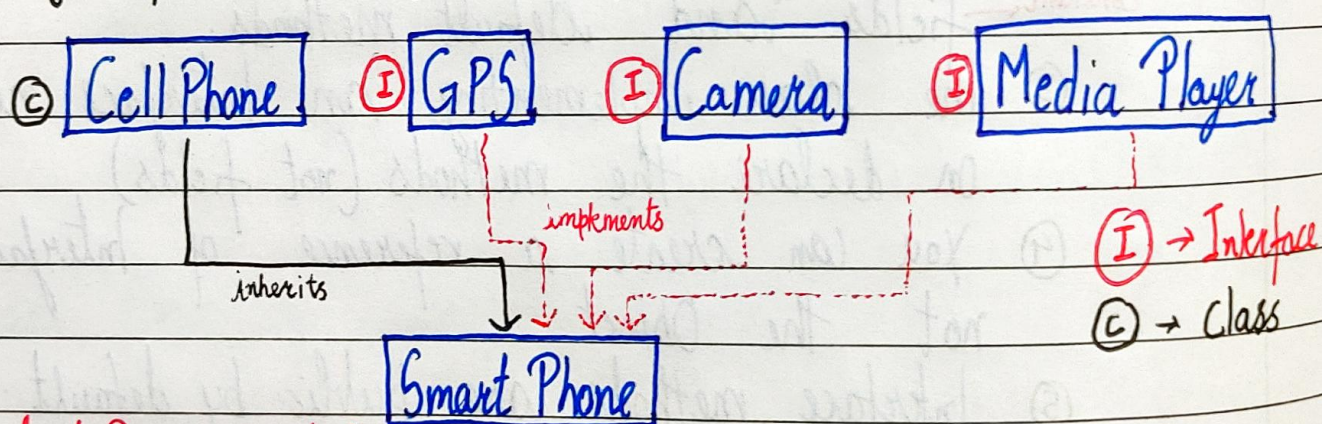 C Cell Phone I GPS I Camera I Media Player
implements
I → Interface
inherits
C → Class
Smart Phone